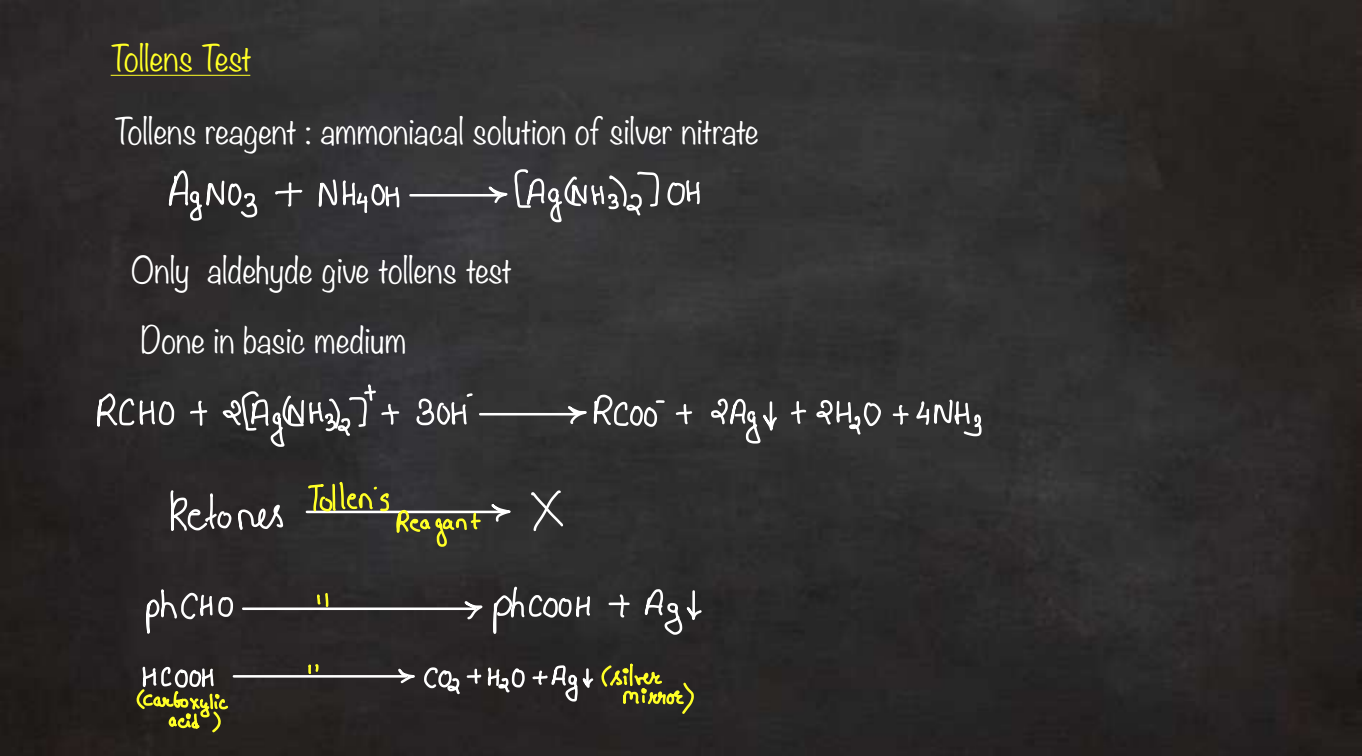 Tollens Test
Tollens reagent : ammoniacal solution of silver nitrate
AgNO3 + NH4OH ⟶ [Ag(NH3)2]OH
Only aldehyde give tollens test
Done in basic medium
RCHO + 2[Ag(NH3)2]⁺ + 3OH⁻ ⟶ RCOO⁻ + 2Ag↓ + 2H2O + 4NH3
Ketones ⟶ X
Tollen's
Reagant
phCHO ⟶ phCOOH + Ag↓
"
HCOOH ⟶ CO2 + H2O + Ag↓ (silver
"
mirror)
(carboxylic
acid)